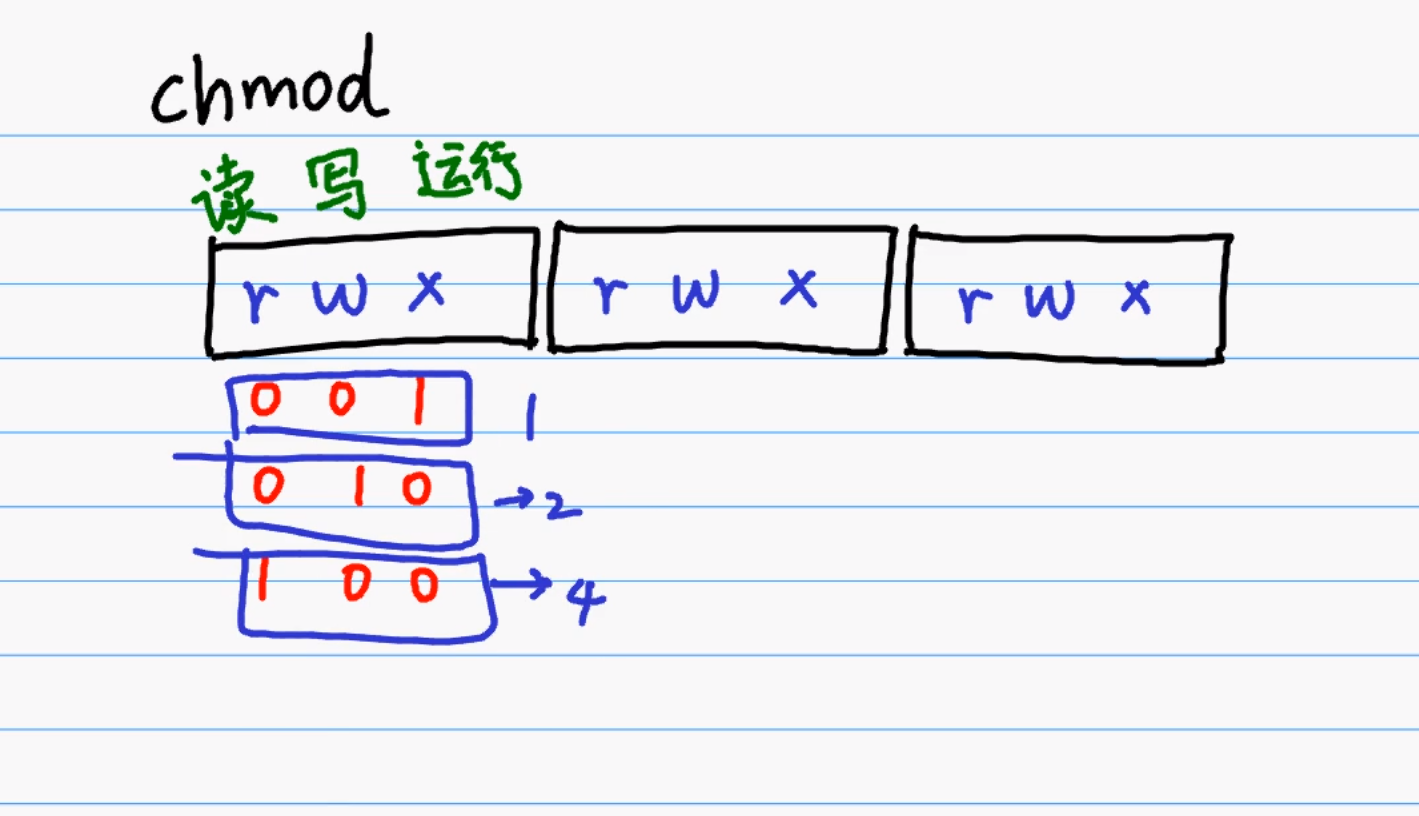 chmod
读 写 运行
r w x r w x r w x
0 0 1 1
0 1 0 →2
1 0 0 →4